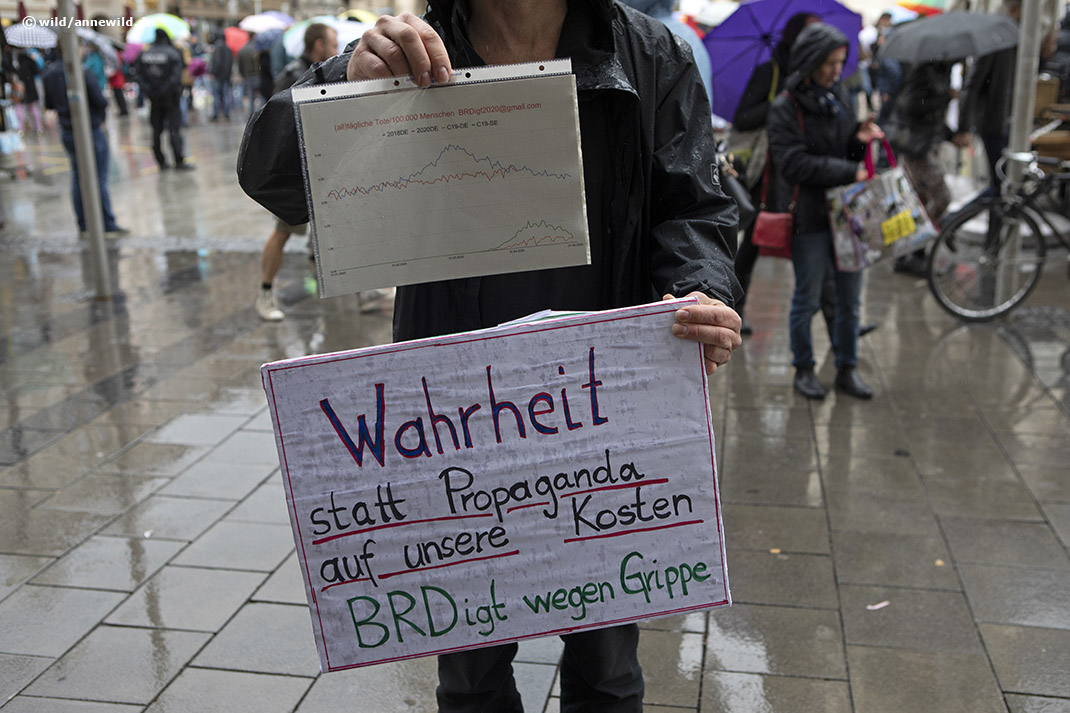 © wild/annewild.de
(all)tägliche Tote/100.000 Menschen BRDigt2020@gmail.com
2018DE 2020DE C19-DE C19-SE
Wahrheit
statt Propaganda
auf unsere Kosten
BRDigt wegen Grippe